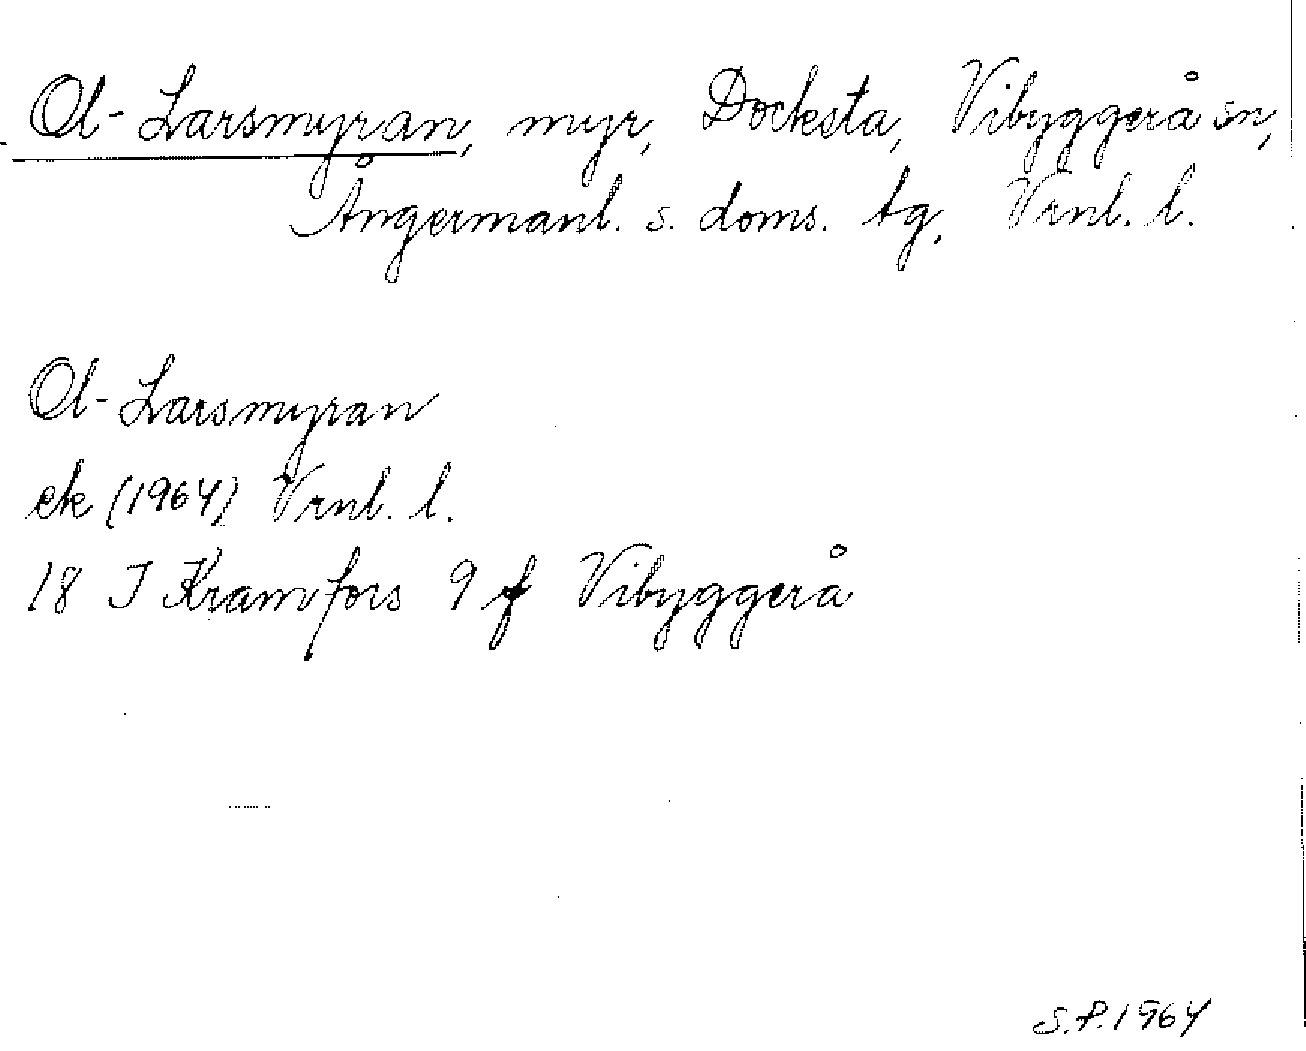 Ol-Larsmyran, myr, Docksta, Vibyggerå sn,
Ångermanl. s. doms. tg, Vrnl. l.
Ol-Larsmyran
ek (1964) Vrnl. l.
18 J Kramfors 9 f Vibyggerå
S.P. 1964